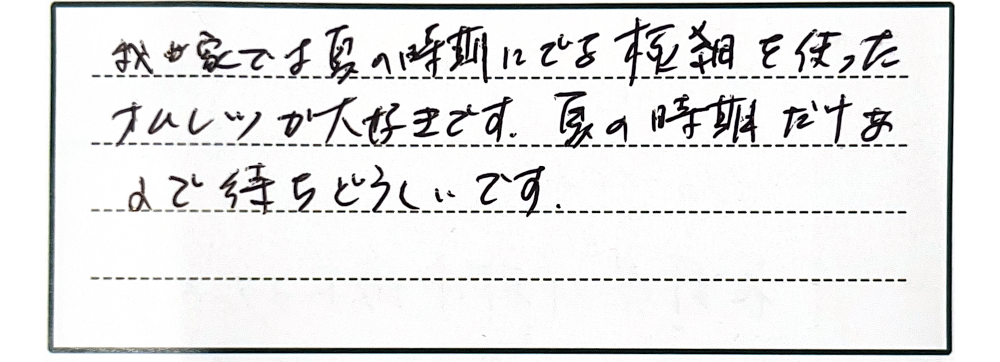 我が家では夏の時期にでるを使った
オムレツが大好きです. 夏の時期だけな
ので待ちどうしいです.